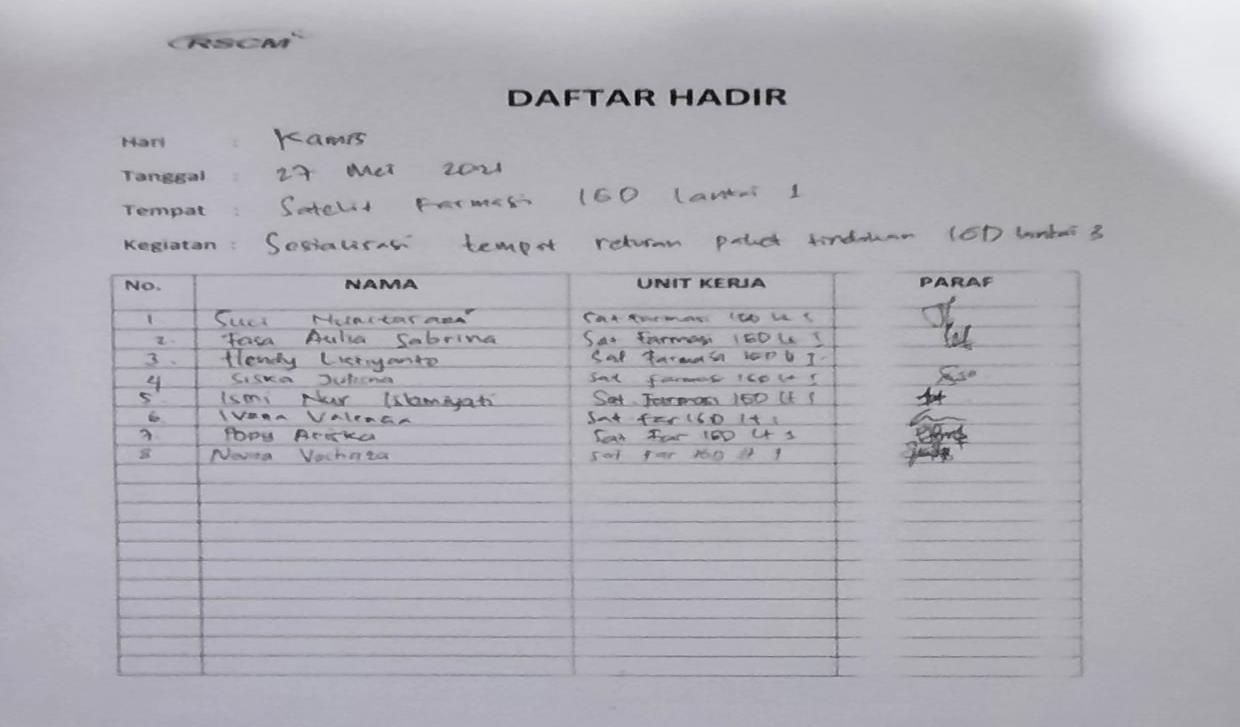 RSCM
DAFTAR HADIR
Hari : Kamis
Tanggal : 27 Mei 2021
Tempat : Satelit Farmasi IGD lantai 1
Kegiatan : Sosialisasi tempat returan paket tindakan IGD lantai 3
No. NAMA UNIT KERJA PARAF
1 Suci Sat Farmasi IGD Lt 1
2. Fasa Aulia Sabrina Sat Farmasi IGD Lt 1
3. Hendy Listiyanto Sat Farmasi IGD Lt 1
4 Siska Juliana Sat Farmasi IGD Lt 1
5 Ismi Nur Islamiyati Sat Farmasi IGD Lt 1
6 Ivana Valencia Sat Far IGD Lt 1
7 Popy Ariska Sat Far IGD Lt 1
8 Sat Far IGD lt 1